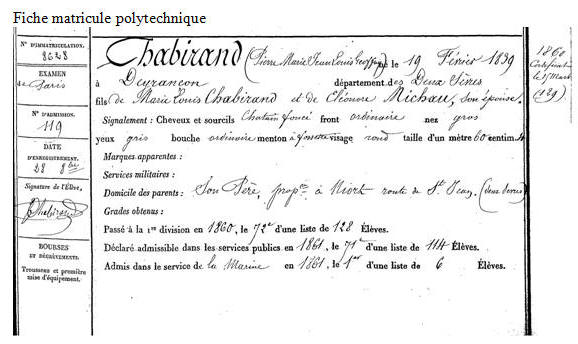 Fiche matricule polytechnique
N° D'IMMATRICULATION.
8628
EXAMEN
de Paris
N° D'ADMISSION.
119
DATE
D'ENREGISTREMENT.
28 8bre
Signature de l'Élève,
Chabirand
BOURSES
ET DÉGRÈVEMENTS.
Trousseau et première
mise d'équipement.
Chabirand (Pierre Marie Jean Louis Geoffroy) né le 19 Février 1839
à Deyrancon département des Deux Sèvres
fils de Marie Louis Chabirand et de Eléonore Michau, son épouse.
Signalement : Cheveux et sourcils Chatain foncé front ordinaire nez gros
yeux gris bouche ordinaire menton à fossette visage rond taille d'un mètre 60 centim.
Marques apparentes :
Services militaires :
Domicile des parents : Son Père, propre à Niort route de St Jean. (Deux Sèvres)
Grades obtenus :
Passé à la 1re division en 1860, le 72e d'une liste de 128 Élèves.
Déclaré admissible dans les services publics en 1861, le 71e d'une liste de 114 Élèves.
Admis dans le service de la Marine en 1861, le 1er d'une liste de 6 Élèves.
1860
le 15 Mars
(129)